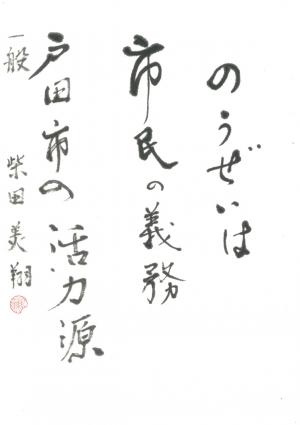 のうぜいは
市民の義務
戸田市の活力源
一般 柴田美翔